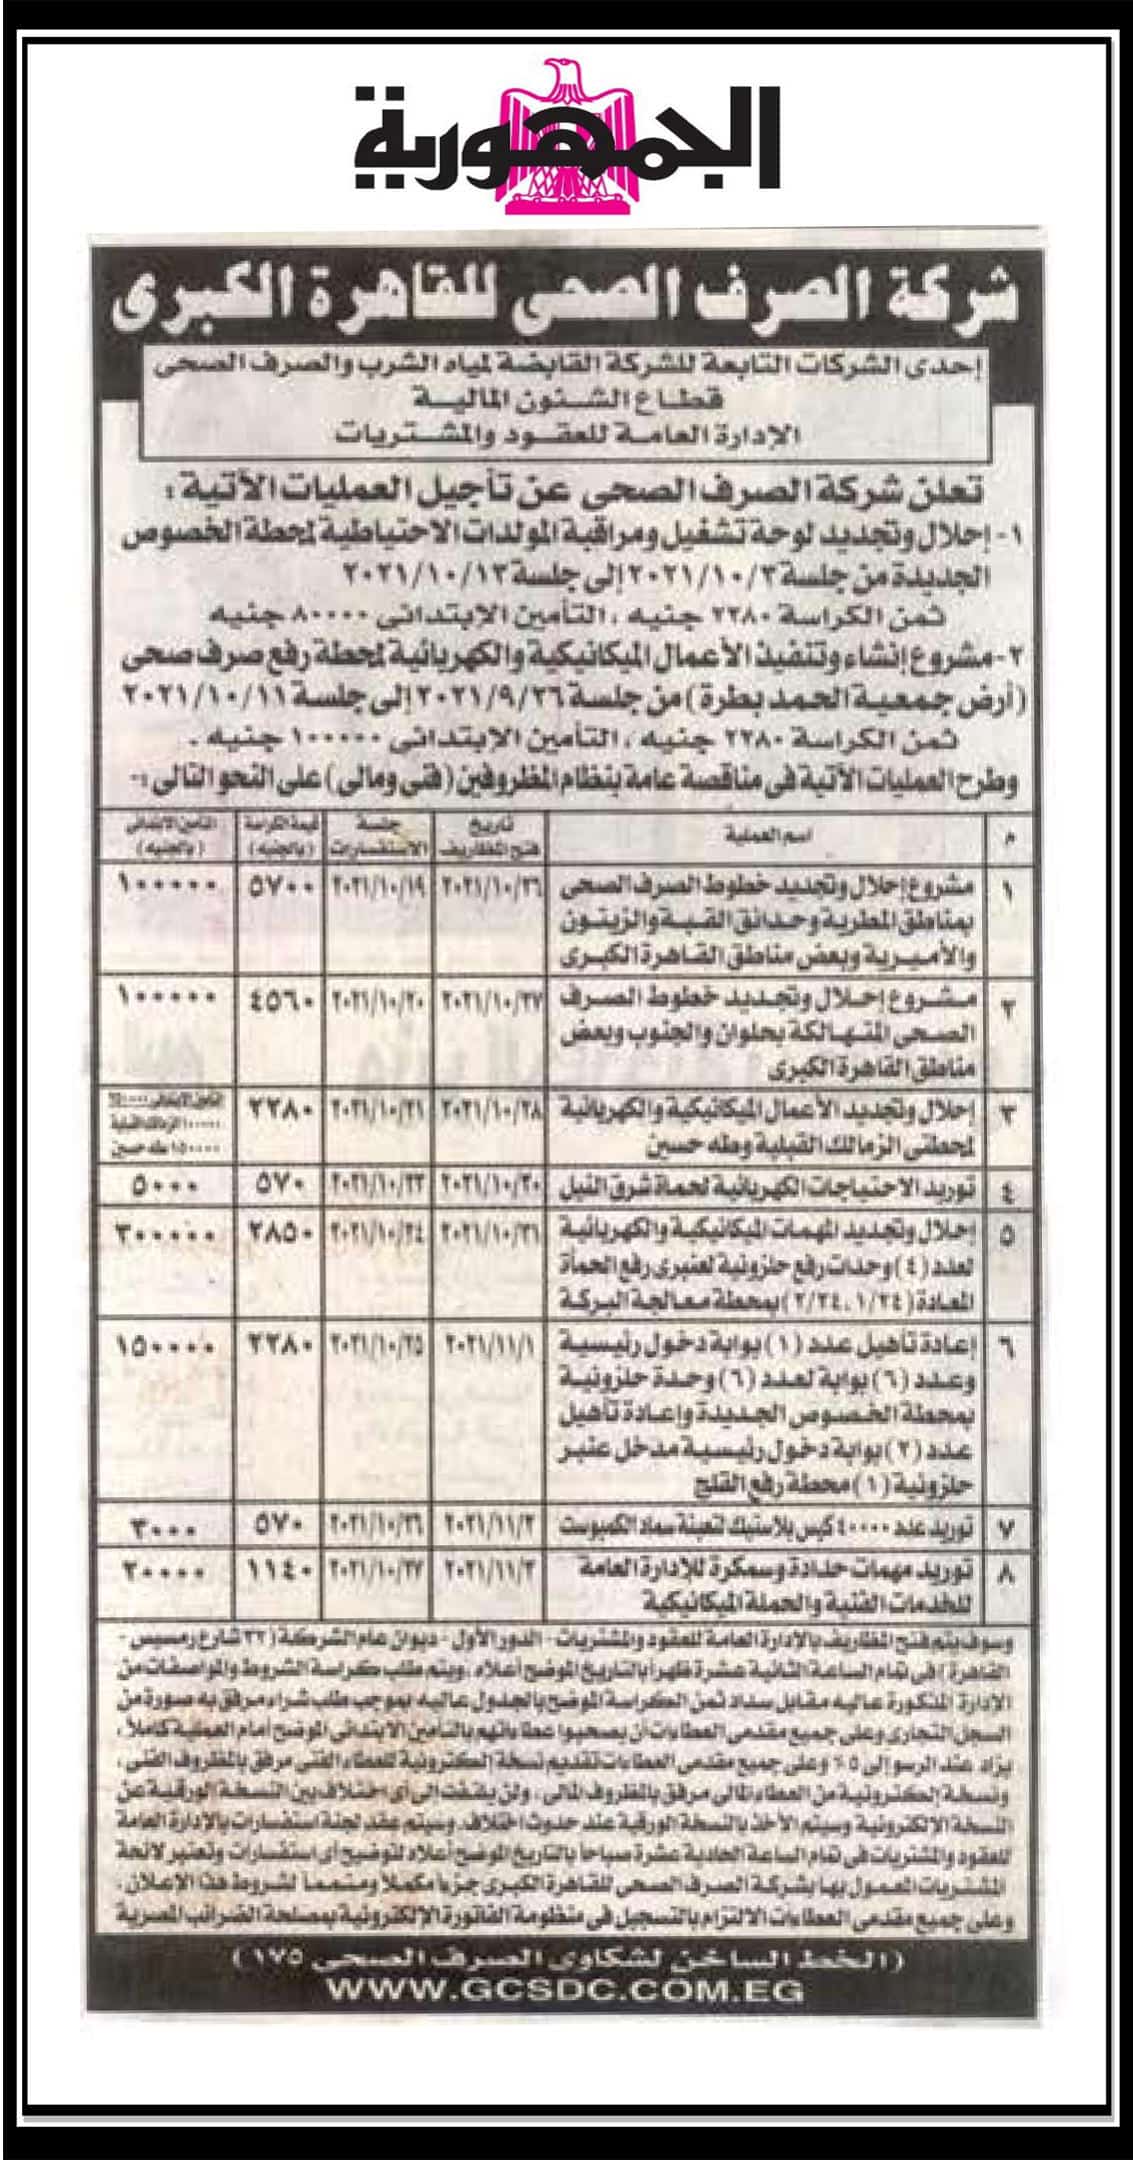 الجمهورية
شركة الصرف الصحى للقاهرة الكبرى
إحدى الشركات التابعة للشركة القابضة لمياه الشرب والصرف الصحى
قطاع الشئون المالية
الإدارة العامة للعقود والمشتريات
تعلن شركة الصرف الصحى عن تأجيل العمليات الآتية :
١- إحلال وتجديد لوحة تشغيل ومراقبة المولدات الاحتياطية لمحطة الخصوص
الجديدة من جلسة ٢٠٢١/١٠/٣ إلى جلسة ٢٠٢١/١٠/١٣
ثمن الكراسة ٢٢٨٠ جنيه ، التأمين الابتدائى ٨٠٠٠٠ جنيه
٢- مشروع إنشاء وتنفيذ الأعمال الميكانيكية والكهربائية لمحطة رفع صرف صحى
(أرض جمعية الحمد بطرة) من جلسة ٢٠٢١/٩/٢٦ إلى جلسة ٢٠٢١/١٠/١١
ثمن الكراسة ٢٢٨٠ جنيه ، التأمين الابتدائى ١٠٠٠٠٠ جنيه .
وطرح العمليات الآتية فى مناقصة عامة بنظام المظروفين (فنى ومالى) على النحو التالى :-
م اسم العملية تاريخ فتح المظاريف جلسة الاستفسارات قيمة الكراسة (بالجنيه) التأمين الابتدائى (بالجنيه)
١ مشروع إحلال وتجديد خطوط الصرف الصحى ٢٠٢١/١٠/٢٦ ٢٠٢١/١٠/١٩ ٥٧٠٠ ١٠٠٠٠٠٠
بمناطق المطرية وحدائق القبة والزيتون
والأميرية وبعض مناطق القاهرة الكبرى
٢ مشروع إحلال وتجديد خطوط الصرف ٢٠٢١/١٠/٢٧ ٢٠٢١/١٠/٢٠ ٤٥٦٠ ١٠٠٠٠٠٠
الصحى المتهالكة بحلوان والجنوب وبعض
مناطق القاهرة الكبرى
٣ إحلال وتجديد الأعمال الميكانيكية والكهربائية ٢٠٢١/١٠/٢٨ ٢٠٢١/١٠/٢١ ٢٢٨٠ التأمين الابتدائى
لمحطتى الزمالك القبلية وطه حسين الزمالك القبلية
١٥٠٠٠٠ طه حسين
٤ توريد الاحتياجات الكهربائية لحماة شرق النيل ٢٠٢١/١٠/٣٠ ٢٠٢١/١٠/٢٣ ٥٧٠ ٥٠٠٠
٥ إحلال وتجديد المهمات الميكانيكية والكهربائية ٢٠٢١/١٠/٣١ ٢٠٢١/١٠/٢٤ ٢٨٥٠ ٣٠٠٠٠٠
لعدد (٤) وحدات رفع حلزونية لعنبرى رفع الحمأة
المعادة (١/٢٤، ٢/٢٤) بمحطة معالجة البركة
٦ إعادة تأهيل عدد (١) بوابة دخول رئيسية ٢٠٢١/١١/١ ٢٠٢١/١٠/٢٥ ٢٢٨٠ ١٥٠٠٠٠
وعدد (٦) بوابة لعدد (٦) وحدة حلزونية
بمحطة الخصوص الجديدة وإعادة تأهيل
عدد (٢) بوابة دخول رئيسية مدخل عنبر
حلزونية (١) محطة رفع القلج
٧ توريد عدد ٤٠٠٠٠ كيس بلاستيك لتعبئة سماد الكمبوست ٢٠٢١/١١/٢ ٢٠٢١/١٠/٢٦ ٥٧٠ ٣٠٠٠
٨ توريد مهمات حدادة وسمكرة للإدارة العامة ٢٠٢١/١١/٣ ٢٠٢١/١٠/٢٧ ١١٤٠ ٢٠٠٠٠
للخدمات الفنية والحملة الميكانيكية
وسوف يتم فتح المظاريف بالإدارة العامة للعقود والمشتريات - الدور الأول - ديوان عام الشركة (٢٢ شارع رمسيس -
القاهرة) فى تمام الساعة الثانية عشرة ظهراً بالتاريخ الموضح أعلاه ، ويتم طلب كراسة الشروط والمواصفات من
الإدارة المذكورة عاليه مقابل سداد ثمن الكراسة الموضح بالجدول عاليه بموجب طلب شراء مرفق به صورة من
السجل التجارى وعلى جميع مقدمى العطاءات أن يصحبوا عطاءاتهم بالتأمين الابتدائى الموضح أمام العملية كاملاً ،
يزاد عند الرسو إلى ٥٪ وعلى جميع مقدمى العطاءات تقديم نسخة إلكترونية للعطاء الفنى مرفق بالمظروف الفنى ،
ونسخة إلكترونية من العطاء المالى مرفق بالمظروف المالى ، ولن يلتفت إلى أى اختلاف بين النسخة الورقية عن
النسخة الإلكترونية وسيتم الأخذ بالنسخة الورقية عند حدوث اختلاف. وسيتم عقد لجنة استفسارات بالإدارة العامة
للعقود والمشتريات فى تمام الساعة الحادية عشرة صباحاً بالتاريخ الموضح أعلاه لتوضيح أى استفسارات وتعتبر لائحة
المشتريات المعمول بها بشركة الصرف الصحى للقاهرة الكبرى جزءاً مكملاً ومتمماً لشروط هذا الإعلان .
وعلى جميع مقدمى العطاءات الالتزام بالتسجيل فى منظومة الفاتورة الإلكترونية بمصلحة الضرائب المصرية
(الخط الساخن لشكاوى الصرف الصحى ١٧٥)
WWW.GCSDC.COM.EG